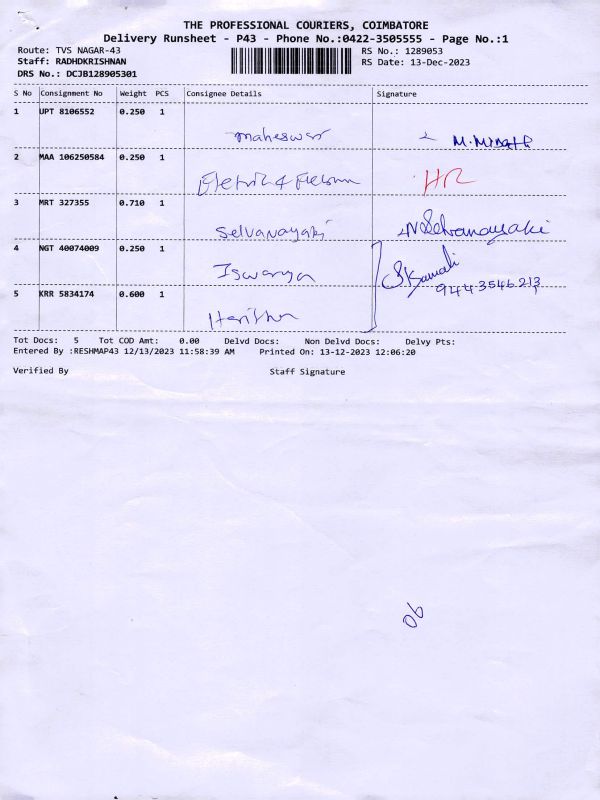 THE PROFESSIONAL COURIERS, COIMBATORE
Delivery Runsheet - P43 - Phone No.:0422-3505555 - Page No.:1
Route: TVS NAGAR-43 RS No.: 1289053
Staff: RADHDKRISHNAN RS Date: 13-Dec-2023
DRS No.: DCJB128905301
S No Consignment No Weight PCS Consignee Details Signature
1 UPT 8106552 0.250 1
maheswari
2 MAA 106250584 0.250 1
HR
3 MRT 327355 0.710 1
Selvanayaki N Selvanayaki
4 NGT 40074009 0.250 1
Iswarya S Kamali
9443546213
5 KRR 5834174 0.600 1
Tot Docs: 5 Tot COD Amt: 0.00 Delvd Docs: Non Delvd Docs: Delvy Pts:
Entered By :RESHMAP43 12/13/2023 11:58:39 AM Printed On: 13-12-2023 12:06:20
Verified By Staff Signature